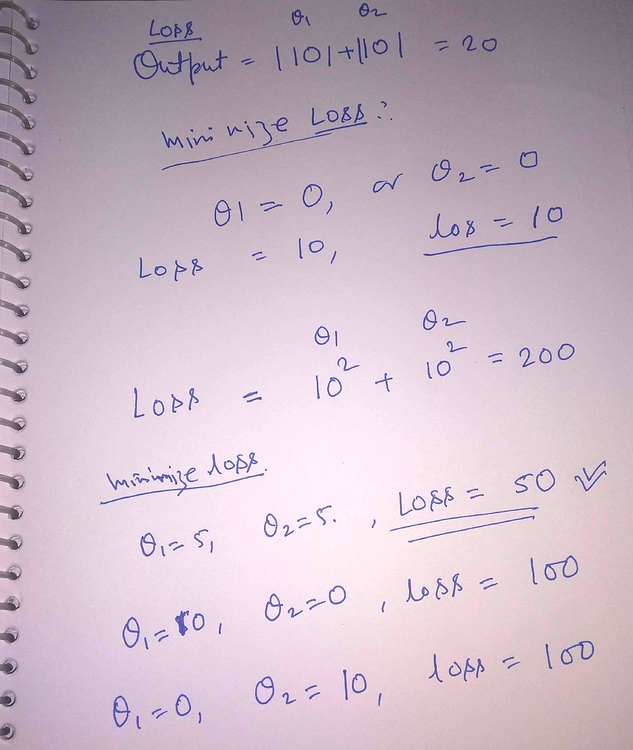 Loss
θ1 θ2
Output = |10| + |10| = 20
minimize Loss:
θ1 = 0, or θ2 = 0
Loss = 10, los = 10
θ1 θ2
Loss = 10² + 10² = 200
minimize loss.
θ1 = 5, θ2 = 5. , Loss = 50 ✓
θ1 = 10, θ2 = 0 , loss = 100
θ1 = 0, θ2 = 10, loss = 100